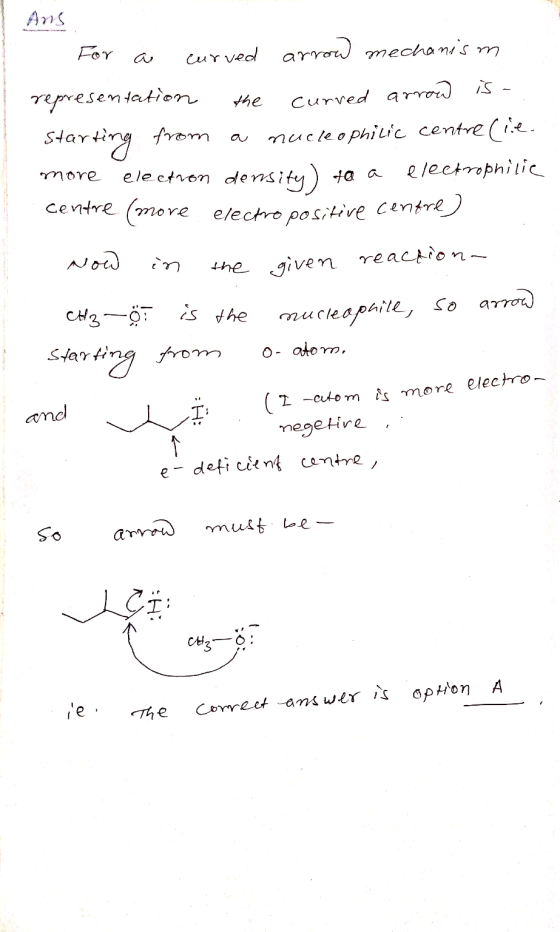 Ans
For a curved arrow mechanism
representation the curved arrow is -
starting from a nucleophilic centre (i.e.
more electron density) to a electrophilic
centre (more electropositive centre)
Now in the given reaction -
CH3-Ö:⁻ is the nucleophile, so arrow
starting from O-atom.
and I: (I-atom is more electro-
negetive ,
e- deficient centre,
so arrow must be -
I:
CH3-Ö:⁻
ie. The correct answer is option A .